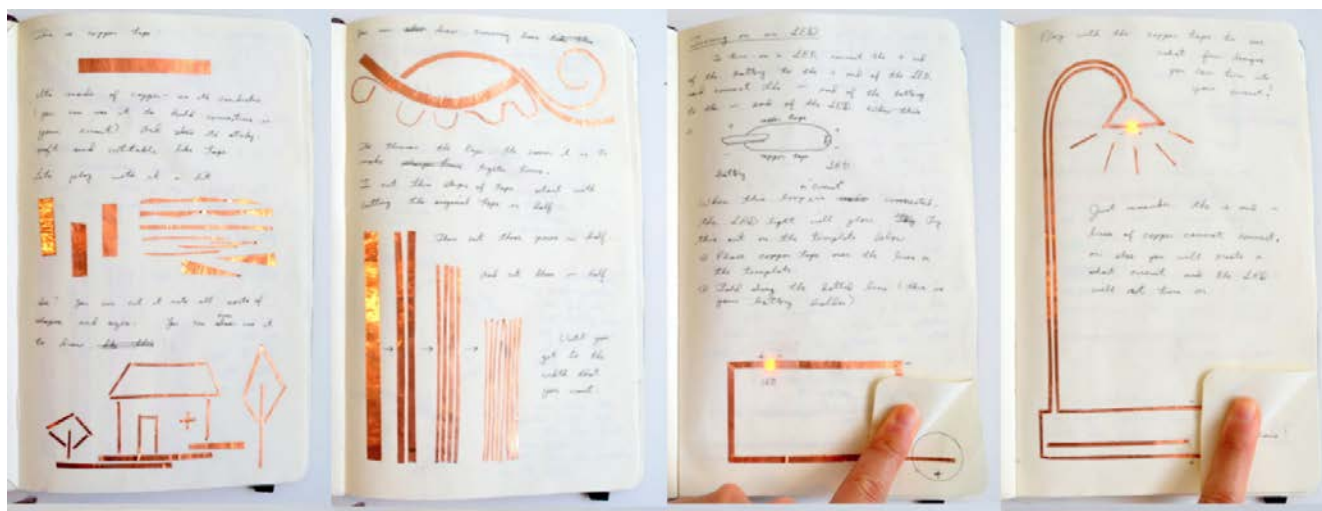 This is copper tape!
It's made of copper - so its conductive
(you can use it to build connections in
your circuit!) But also its sticky,
soft and cuttable like tape
Lets play with it a bit
See? You can cut it into all sorts of
shapes and sizes. You can even use it
to draw like this
You can also draw curving lines like this
The thinner the tape, the easier it is to
make tighter turns.
I cut thin strips of tape start with
cutting the original tape in half.
Then cut those pieces in half.
And cut those in half
Until you
get to the
width that
you want.
Turning on an LED
To turn on a LED, connect the + end
of the battery to the + end of the LED,
and connect the - end of the battery
to the - end of the LED like this
copper tape
+
-
copper tape
battery
LED
a circuit
When this loop is made connected,
the LED light will glow. Try
this out on the template below
① Place copper tape over the lines in
the template
② Fold along the dotted lines (this is
your battery holder)
LED
+
Play with the copper tape to see
what fun designs
you can turn into
your circuit!
Just remember the + and -
lines of copper cannot connect,
or else you will create a
short circuit and the LED
will not turn on